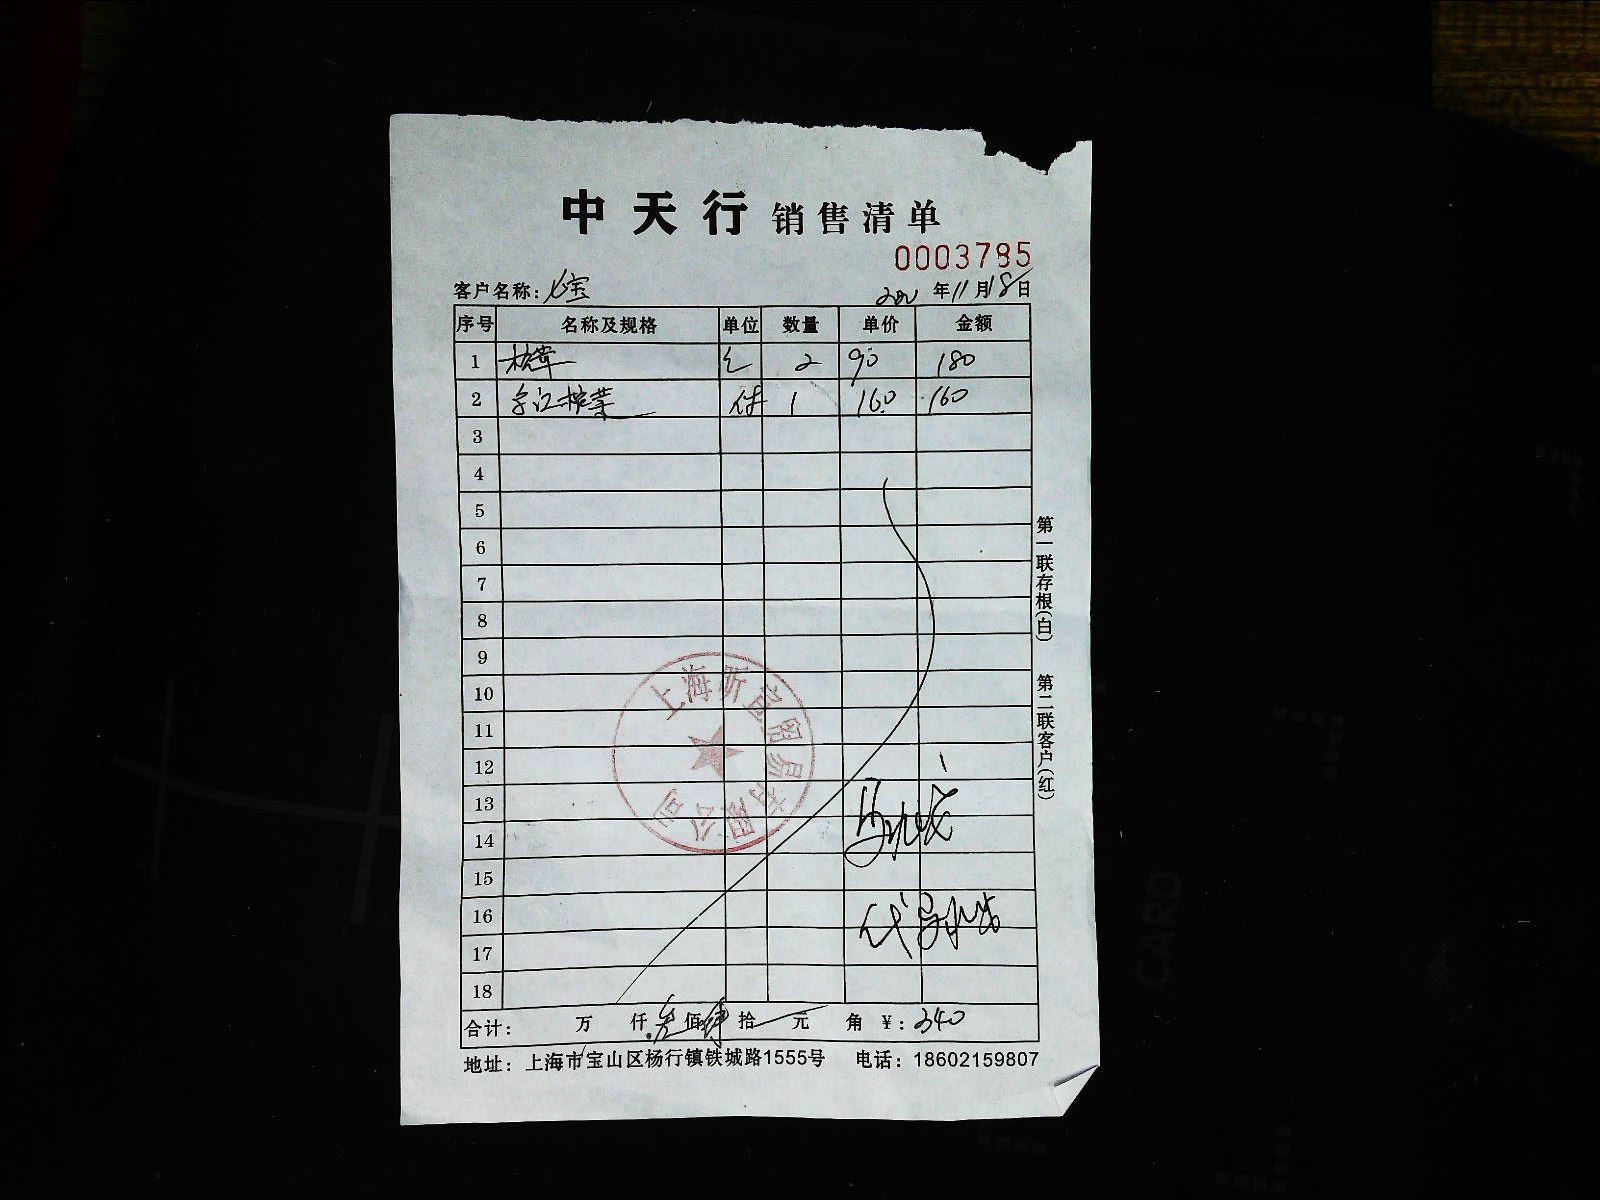 中天行 销售清单
0003785
客户名称: 年11月18日
序号 名称及规格 单位 数量 单价 金额
1 2 90 180
2 件 1 160 160
3
4
5
6
7
8
9
10
11
12
13
14
15
16
17
18
上海 有限公司
代
合计: 万 仟叁佰肆拾 元 角 ¥:340
地址: 上海市宝山区杨行镇铁城路1555号 电话: 18602159807
第一联存根(白) 第二联客户(红)